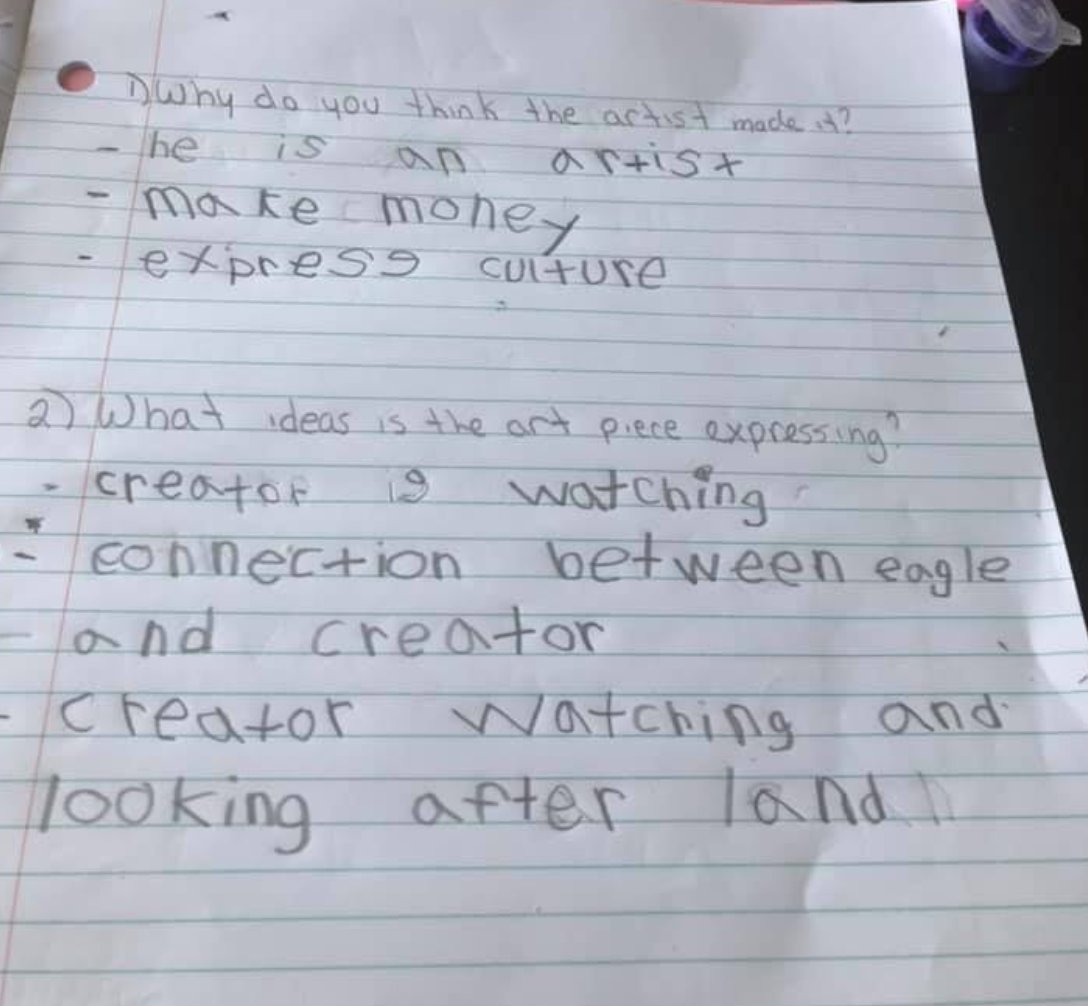 1) Why do you think the artist made it?
- he is an artist
- make money
- express culture
2) What ideas is the art piece expressing?
- creator is watching
- connection between eagle
- and creator
- creator watching and
looking after land